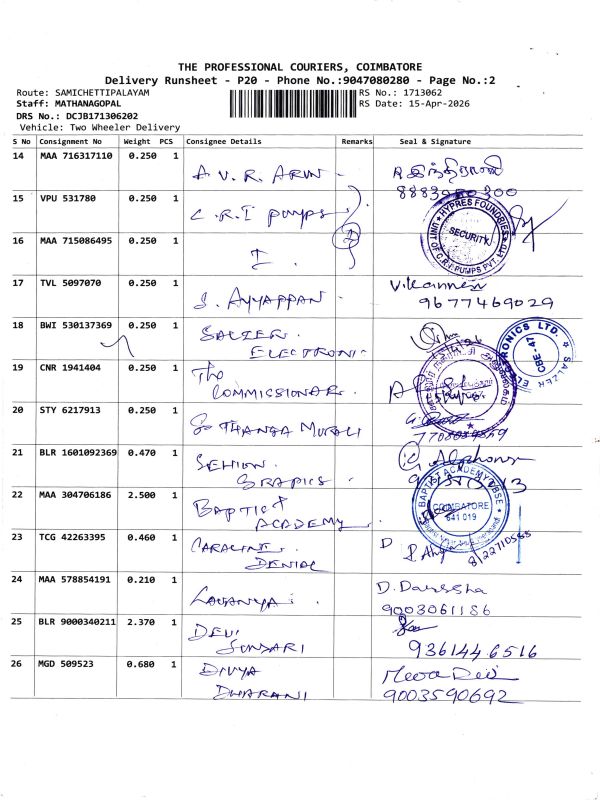 THE PROFESSIONAL COURIERS, COIMBATORE
Delivery Runsheet - P20 - Phone No.:9047080280 - Page No.:2
Route: SAMICHETTIPALAYAM RS No.: 1713062
Staff: MATHANAGOPAL RS Date: 15-Apr-2026
DRS No.: DCJB171306202
Vehicle: Two Wheeler Delivery
S No Consignment No Weight PCS Consignee Details Remarks Seal & Signature
14 MAA 716317110 0.250 1
A.V.R. ARUN
15 VPU 531780 0.250 1
C.R.I PUMPS
HYPRES FOUNDRIES
SECURITY
UNIT OF C.R.I. PUMPS PVT. LTD
16 MAA 715086495 0.250 1
I.
2
17 TVL 5097070 0.250 1
S. AYYAPPAN
V.Kannan
9677469029
18 BWI 530137369 0.250 1
SALZER
ELECTRONIC
SALZER ELECTRONICS LTD.
CBE-47
19 CNR 1941404 0.250 1
The
COMMISSIONAR.
20 STY 6217913 0.250 1
THANGA MURALI
21 BLR 1601092369 0.470 1
SEHION
GRAPICS
Alphons
22 MAA 304706186 2.500 1
BAPTIST
ACADEMY
BAPTIST ACADEMY CBSE
COIMBATORE
641 019
23 TCG 42263395 0.460 1
CARALINE
DENIAL
24 MAA 578854191 0.210 1
LAVANYA
9003061186
25 BLR 9000340211 2.370 1
DEVI
SUNDARI
9361446516
26 MGD 509523 0.680 1
DIVYA
DHARANI
9003590692